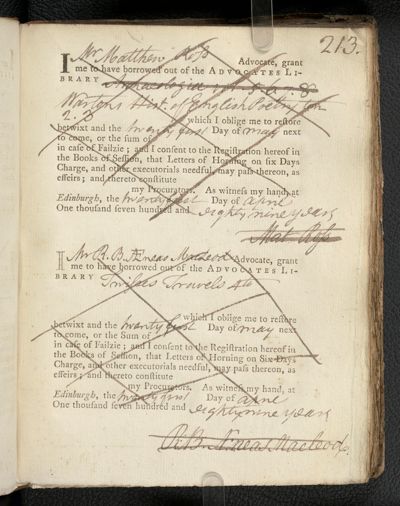 213.
I Mr Matthew Ross Advocate, grant
me to have borrowed out of the ADVOCATES LI-
BRARY Archaeologia vol. 5. 6. 7. 8
Wartons Hist. of English Poetry
2. 3 which I oblige me to restore
betwixt and the twenty first Day of may next
to come, or the sum of
in case of Failzie; and I consent to the Registration hereof in
the Books of Session, that Letters of Horning on six Days
Charge, and other executorials needful, may pass thereon, as
effeirs; and thereto constitute
my Procurators. As witness my hand, at
Edinburgh, the twenty first Day of aprile
One thousand seven hundred and eighty nine years
Mat. Ross
I Mr R. B. Æneas Macleod Advocate, grant
me to have borrowed out of the ADVOCATES LI-
BRARY Twisses Travels 4to
which I oblige me to restore
betwixt and the twenty first Day of may next
to come, or the Sum of
in case of Failzie; and I consent to the Registration hereof in
the Books of Session, that Letters of Horning on Six Days
Charge, and other executorials needful, may pass thereon, as
effeirs; and thereto constitute
my Procurators. As witness my hand, at
Edinburgh, the twenty first Day of aprile
One thousand seven hundred and eighty nine years
R. B. Æneas Macleod